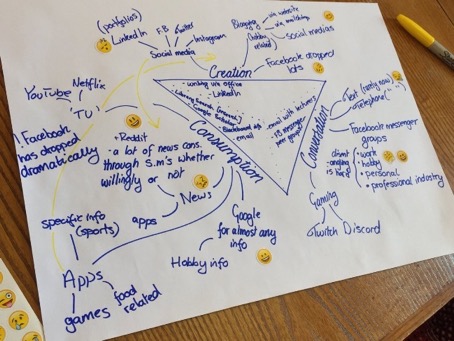 (portfolios)
LinkedIn
FB
Twitter
Instagram
Social media
Blogging
via website
Hobby
related
social medias
Facebook dropped
lots
Creation
- writing via office
- LinkedIn
YouTube
Netflix
'TV'
Facebook
has dropped
dramatically
• Reddit
- a lot of news cons.
through S.M's whether
willingly or not
News
apps
Consumption
email
- email with lecturers
- FB messenger
Conversation
Text (rarely now)
Telephone (" ")
Facebook messenger
groups
• work
• hobby
• personal
• professional industry
Gaming
Twitch
Discord
Google
for almost any
info
Hobby info
specific info
(sports)
Apps
games
food
related